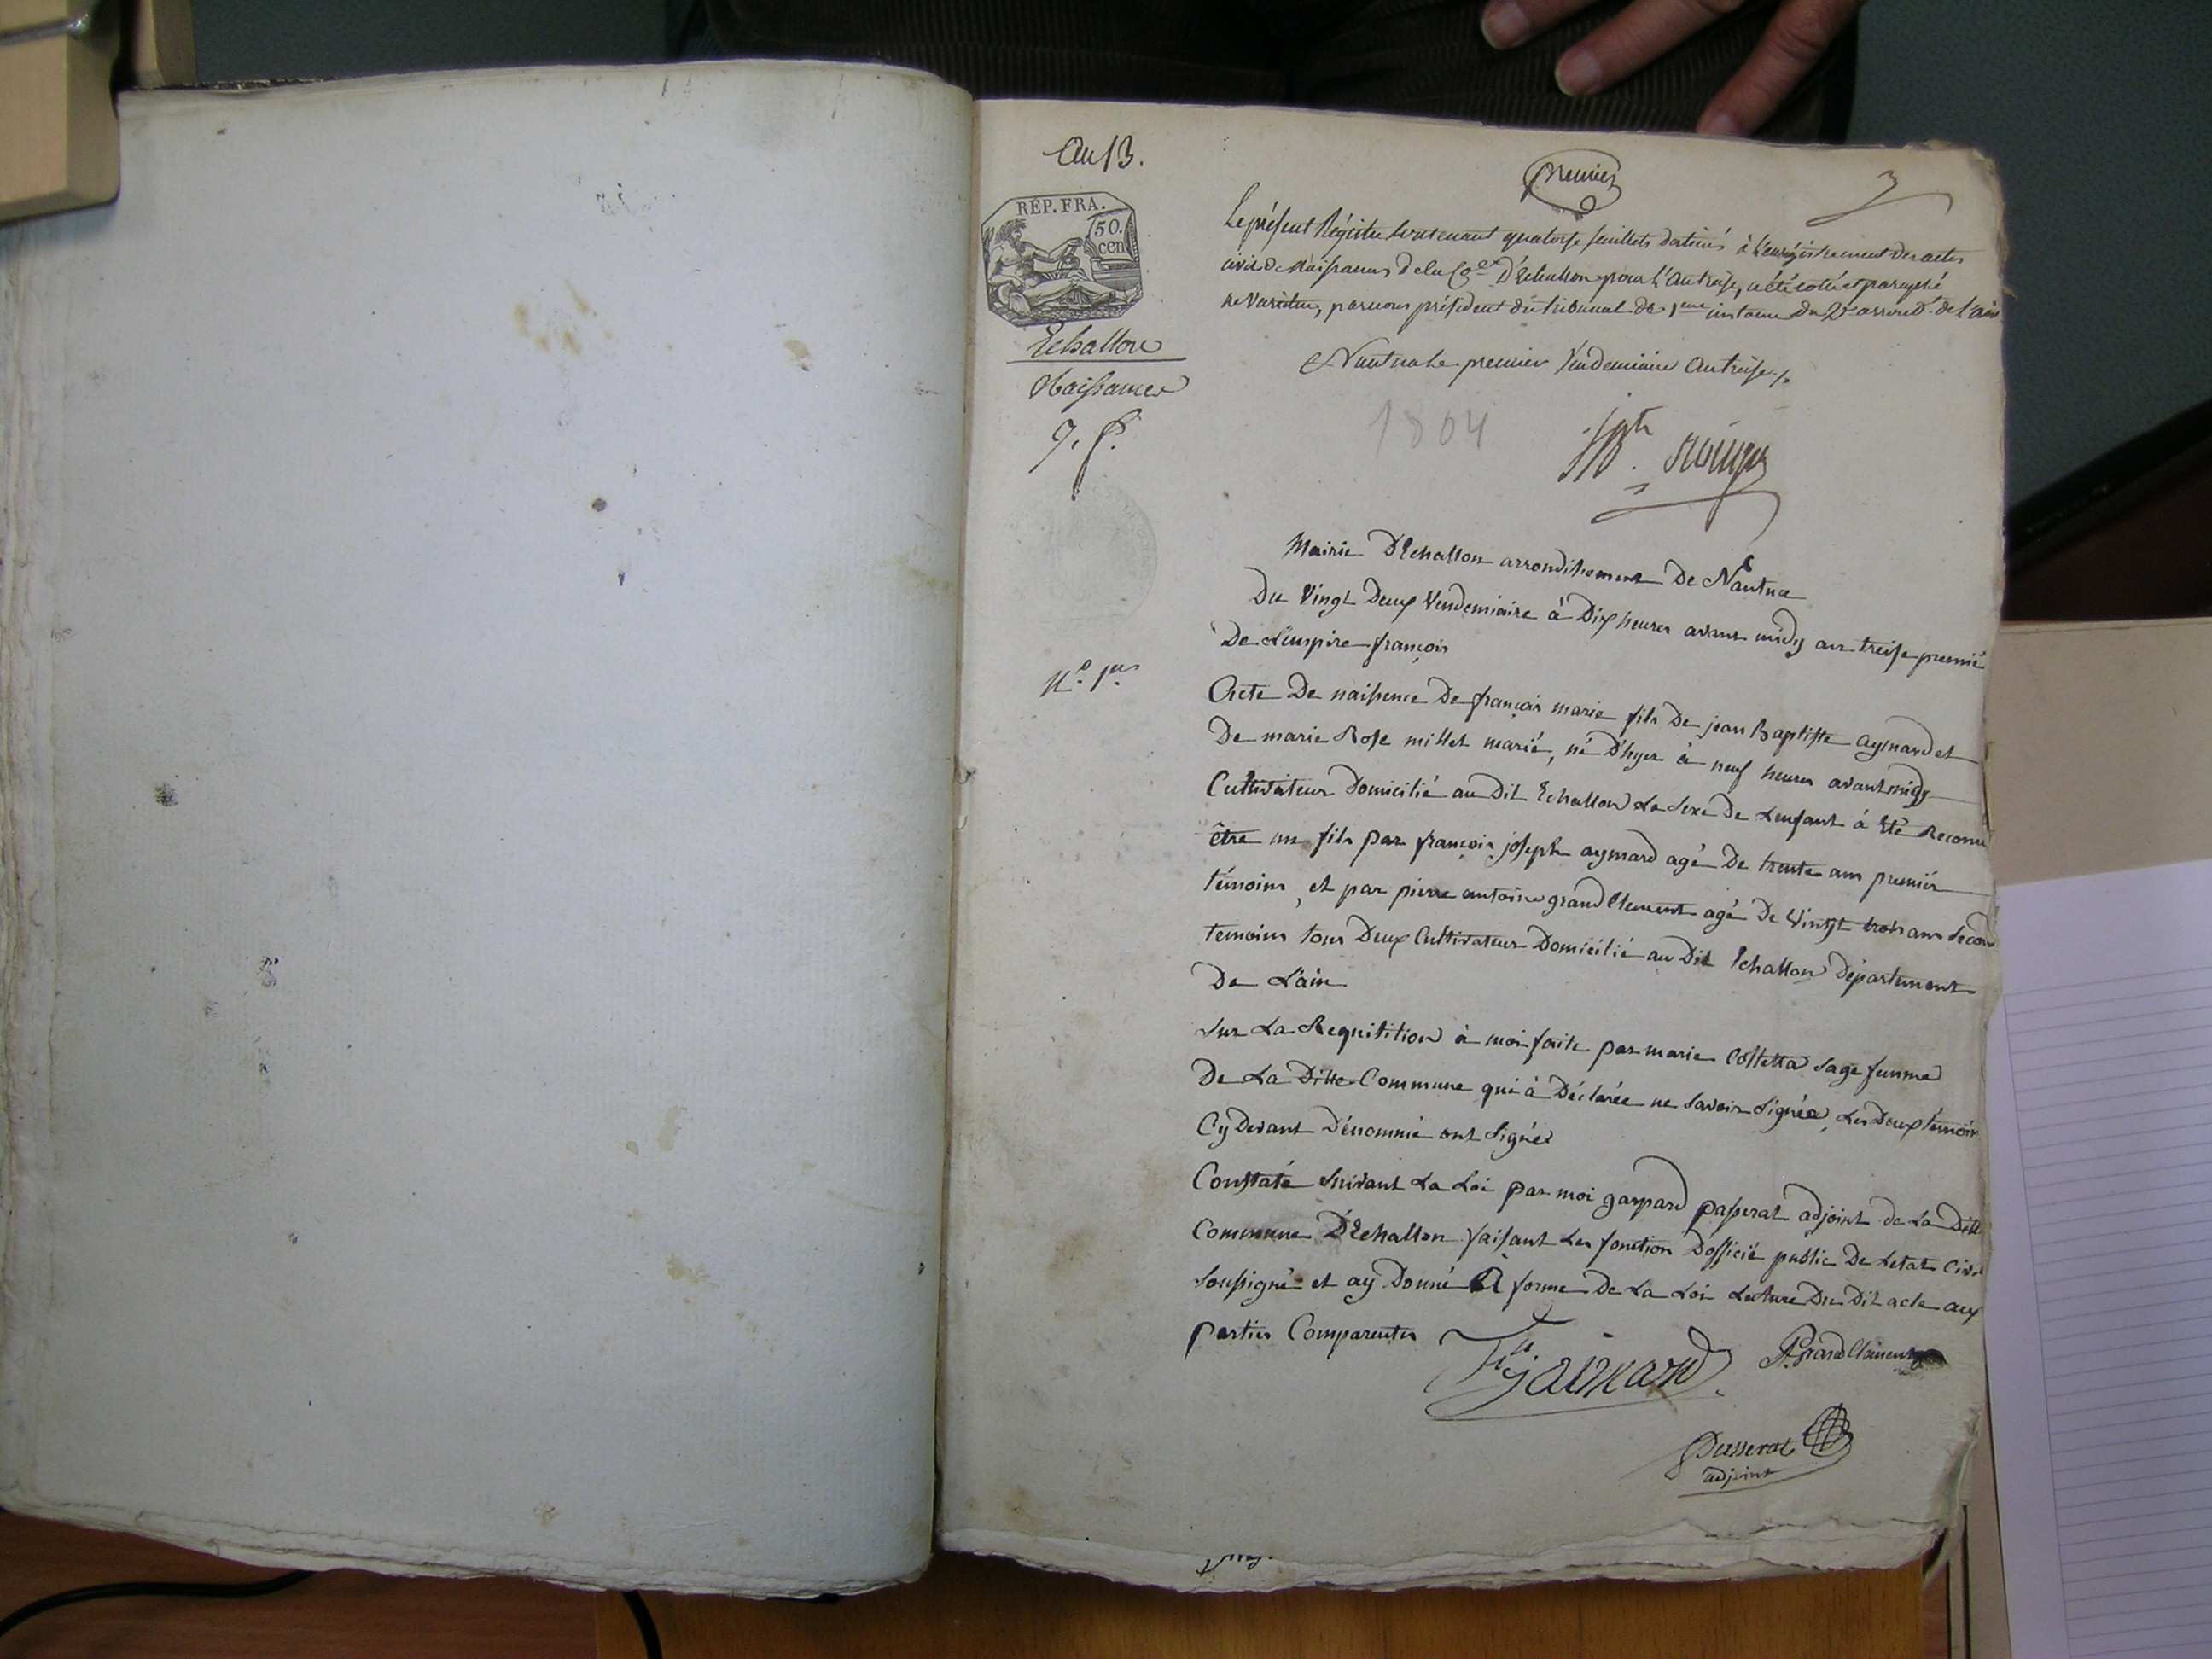 An 13.
premier
3
REP. FRA.
50.
cen
Echallon
Naissances
Le présent Régistre contenant quatorze feuillets destinés à l'enrégistrement des actes
civils de Naissances de la Co.ne D'Echallon pour l'an treize, a été coté et paraphé
ne varietur, par nous président du tribunal de 1ere instance du 2e arrond.t de l'ain
A Nantua le premier Vendemiaire an treize./.
1804
Mairie D'Echallon arrondissement De Nantua
Du Vingt Deux Vendemiaire à Dix heures avant midy an treise premié
De L'empire françois
N.o 1er
Acte De naissence De françois marie fils De jean Baptiste aymard et
De marie Rose millet marié, né D'hyer à neuf heures avant midy
Cultivateur Domicilié au Dit Echallon Le sexe De Lenfant à Eté Reconu
être un fils par françois joseph aymard agé De trente ans premiér
témoins, et par pierre antoine grand Clement agé De Vingt trois ans Second
temoins tous Deux Cultivateur Domicilié au Dit Echallon Département
De L'ain
Sur La Requitition à moi faite par marie Colletta Sage femme
De La Ditte Commune qui à Déclarée ne Savoir Signée, Les Deux témoin
Cy Devant Dénommé ont Signés
Constaté Suivant La Loi par moi gaspard passerat adjoint de La Ditte
Commune D'Echallon faisant Les fonction Dofficié public De Letat Civil
Soussigné et ay Donné A forme De La Loi Lecture Du Dit acte aux
parties Comparentes
P. grand Clément
Passerat
adjoint